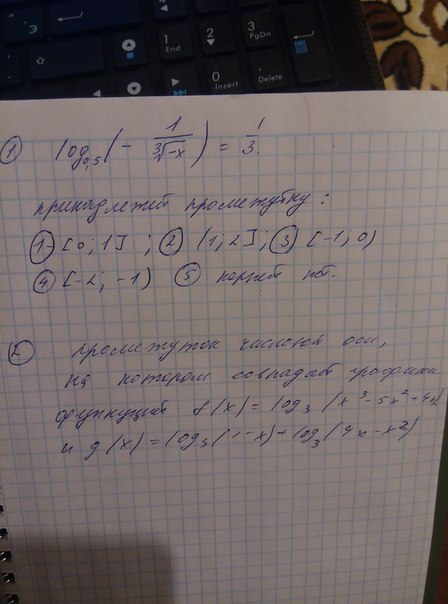 1 End
2
3 PgDn
0 Insert
. Delete
① log₀,₅(- 1/∛-x) = 1/3.
принадлежит промежутку:
① [0; 1] ; ② (1; 2] ; ③ [-1; 0)
④ [-2; -1) ⑤ корней нет.
② промежуток числовой оси,
на котором совпадают графики
функций f(x) = log₃(x³-5x²+4x)
и g(x) = log₃(1-x) + log₃(4x-x²)